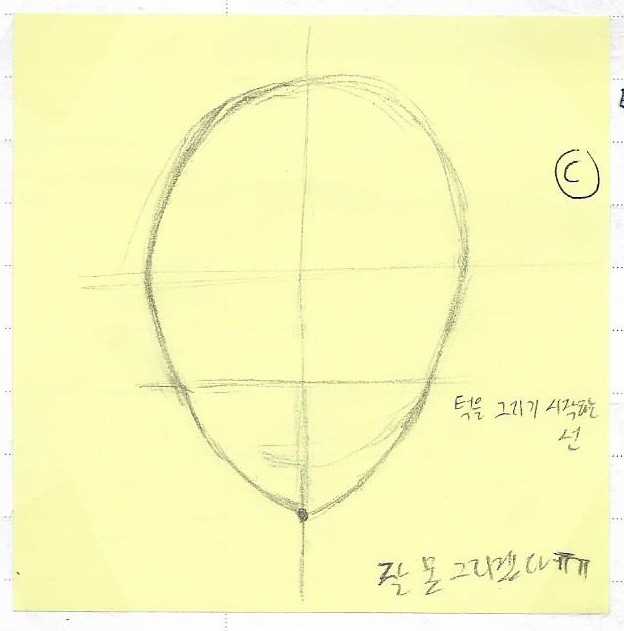 C
턱을 그리기 시작하는
선
잘 못 그리겠다 ㅠㅠ